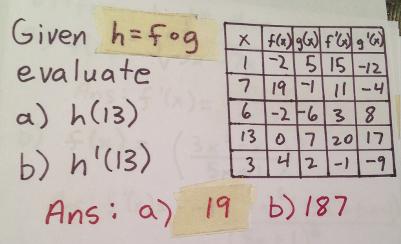 Given h=f∘g
evaluate
a) h(13)
b) h'(13)
x f(x) g(x) f'(x) g'(x)
1 -2 5 15 -12
7 19 -1 11 -4
6 -2 -6 3 8
13 0 7 20 17
3 4 2 -1 -9
Ans: a) 19 b) 187